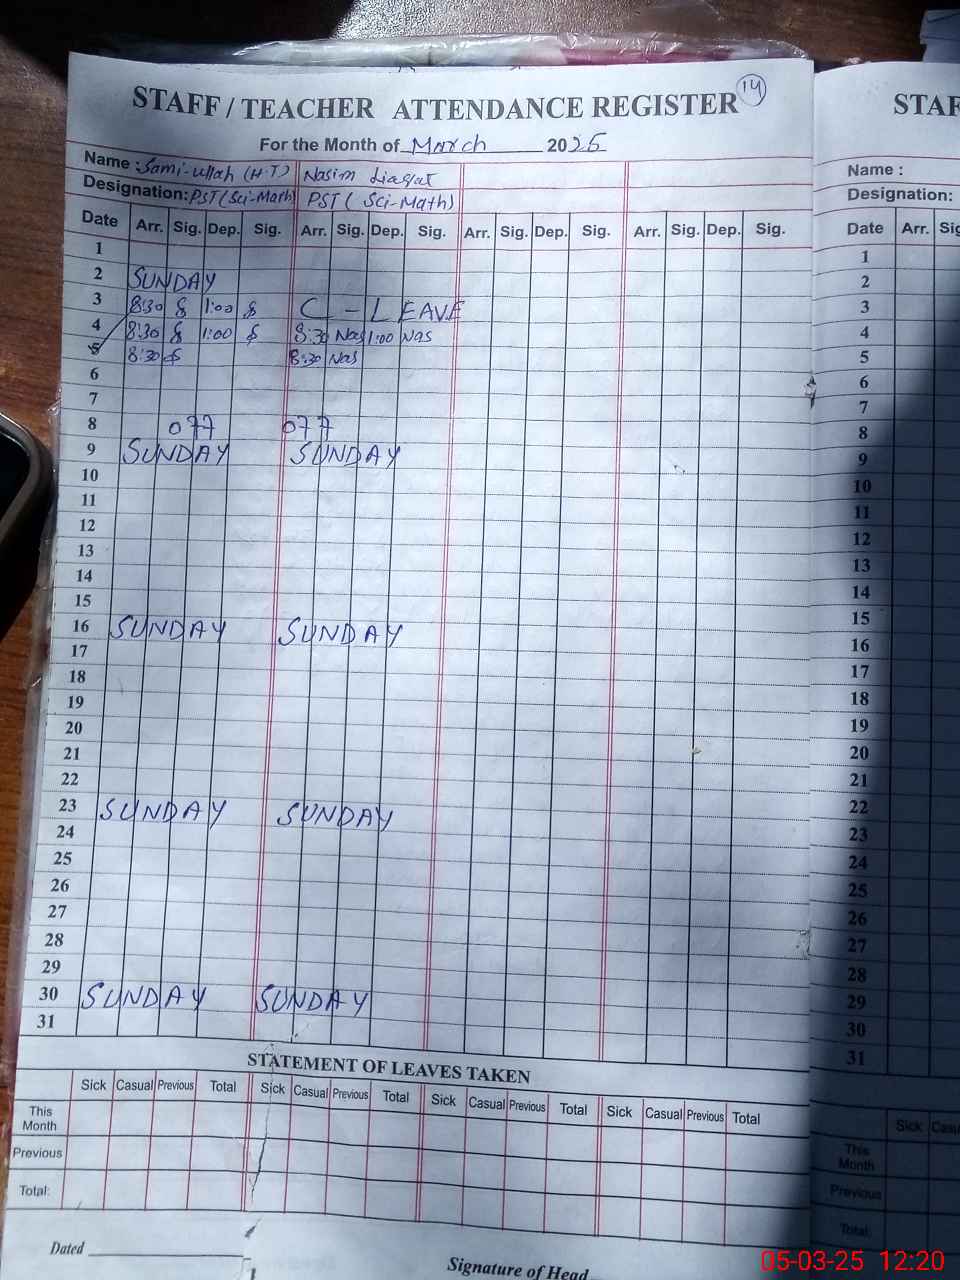 STAFF / TEACHER ATTENDANCE REGISTER 14
For the Month of March 2025
Name : Sami-ullah (H.T) Nasim Liaqat
Designation: PST (Sci-Math) PST ( Sci-Math)
Date Arr. Sig. Dep. Sig. Arr. Sig. Dep. Sig. Arr. Sig. Dep. Sig. Arr. Sig. Dep. Sig.
1
2 SUNDAY
3 8:30 1:00 C - LEAVE
4 8:30 1:00 8:30 Nas 1:00 Nas
5 8:30 8:30 Nas
6
7
8 OFF OFF
9 SUNDAY SUNDAY
10
11
12
13
14
15
16 SUNDAY SUNDAY
17
18
19
20
21
22
23 SUNDAY SUNDAY
24
25
26
27
28
29
30 SUNDAY SUNDAY
31
STATEMENT OF LEAVES TAKEN
Sick Casual Previous Total Sick Casual Previous Total Sick Casual Previous Total Sick Casual Previous Total
This Month
Previous
Total:
Dated
Signature of Head
STAF
Name :
Designation:
Date Arr. Sig
1
2
3
4
5
6
7
8
9
10
11
12
13
14
15
16
17
18
19
20
21
22
23
24
25
26
27
28
29
30
31
Sick Casu
This Month
Previous
Total:
05-03-25 12:20